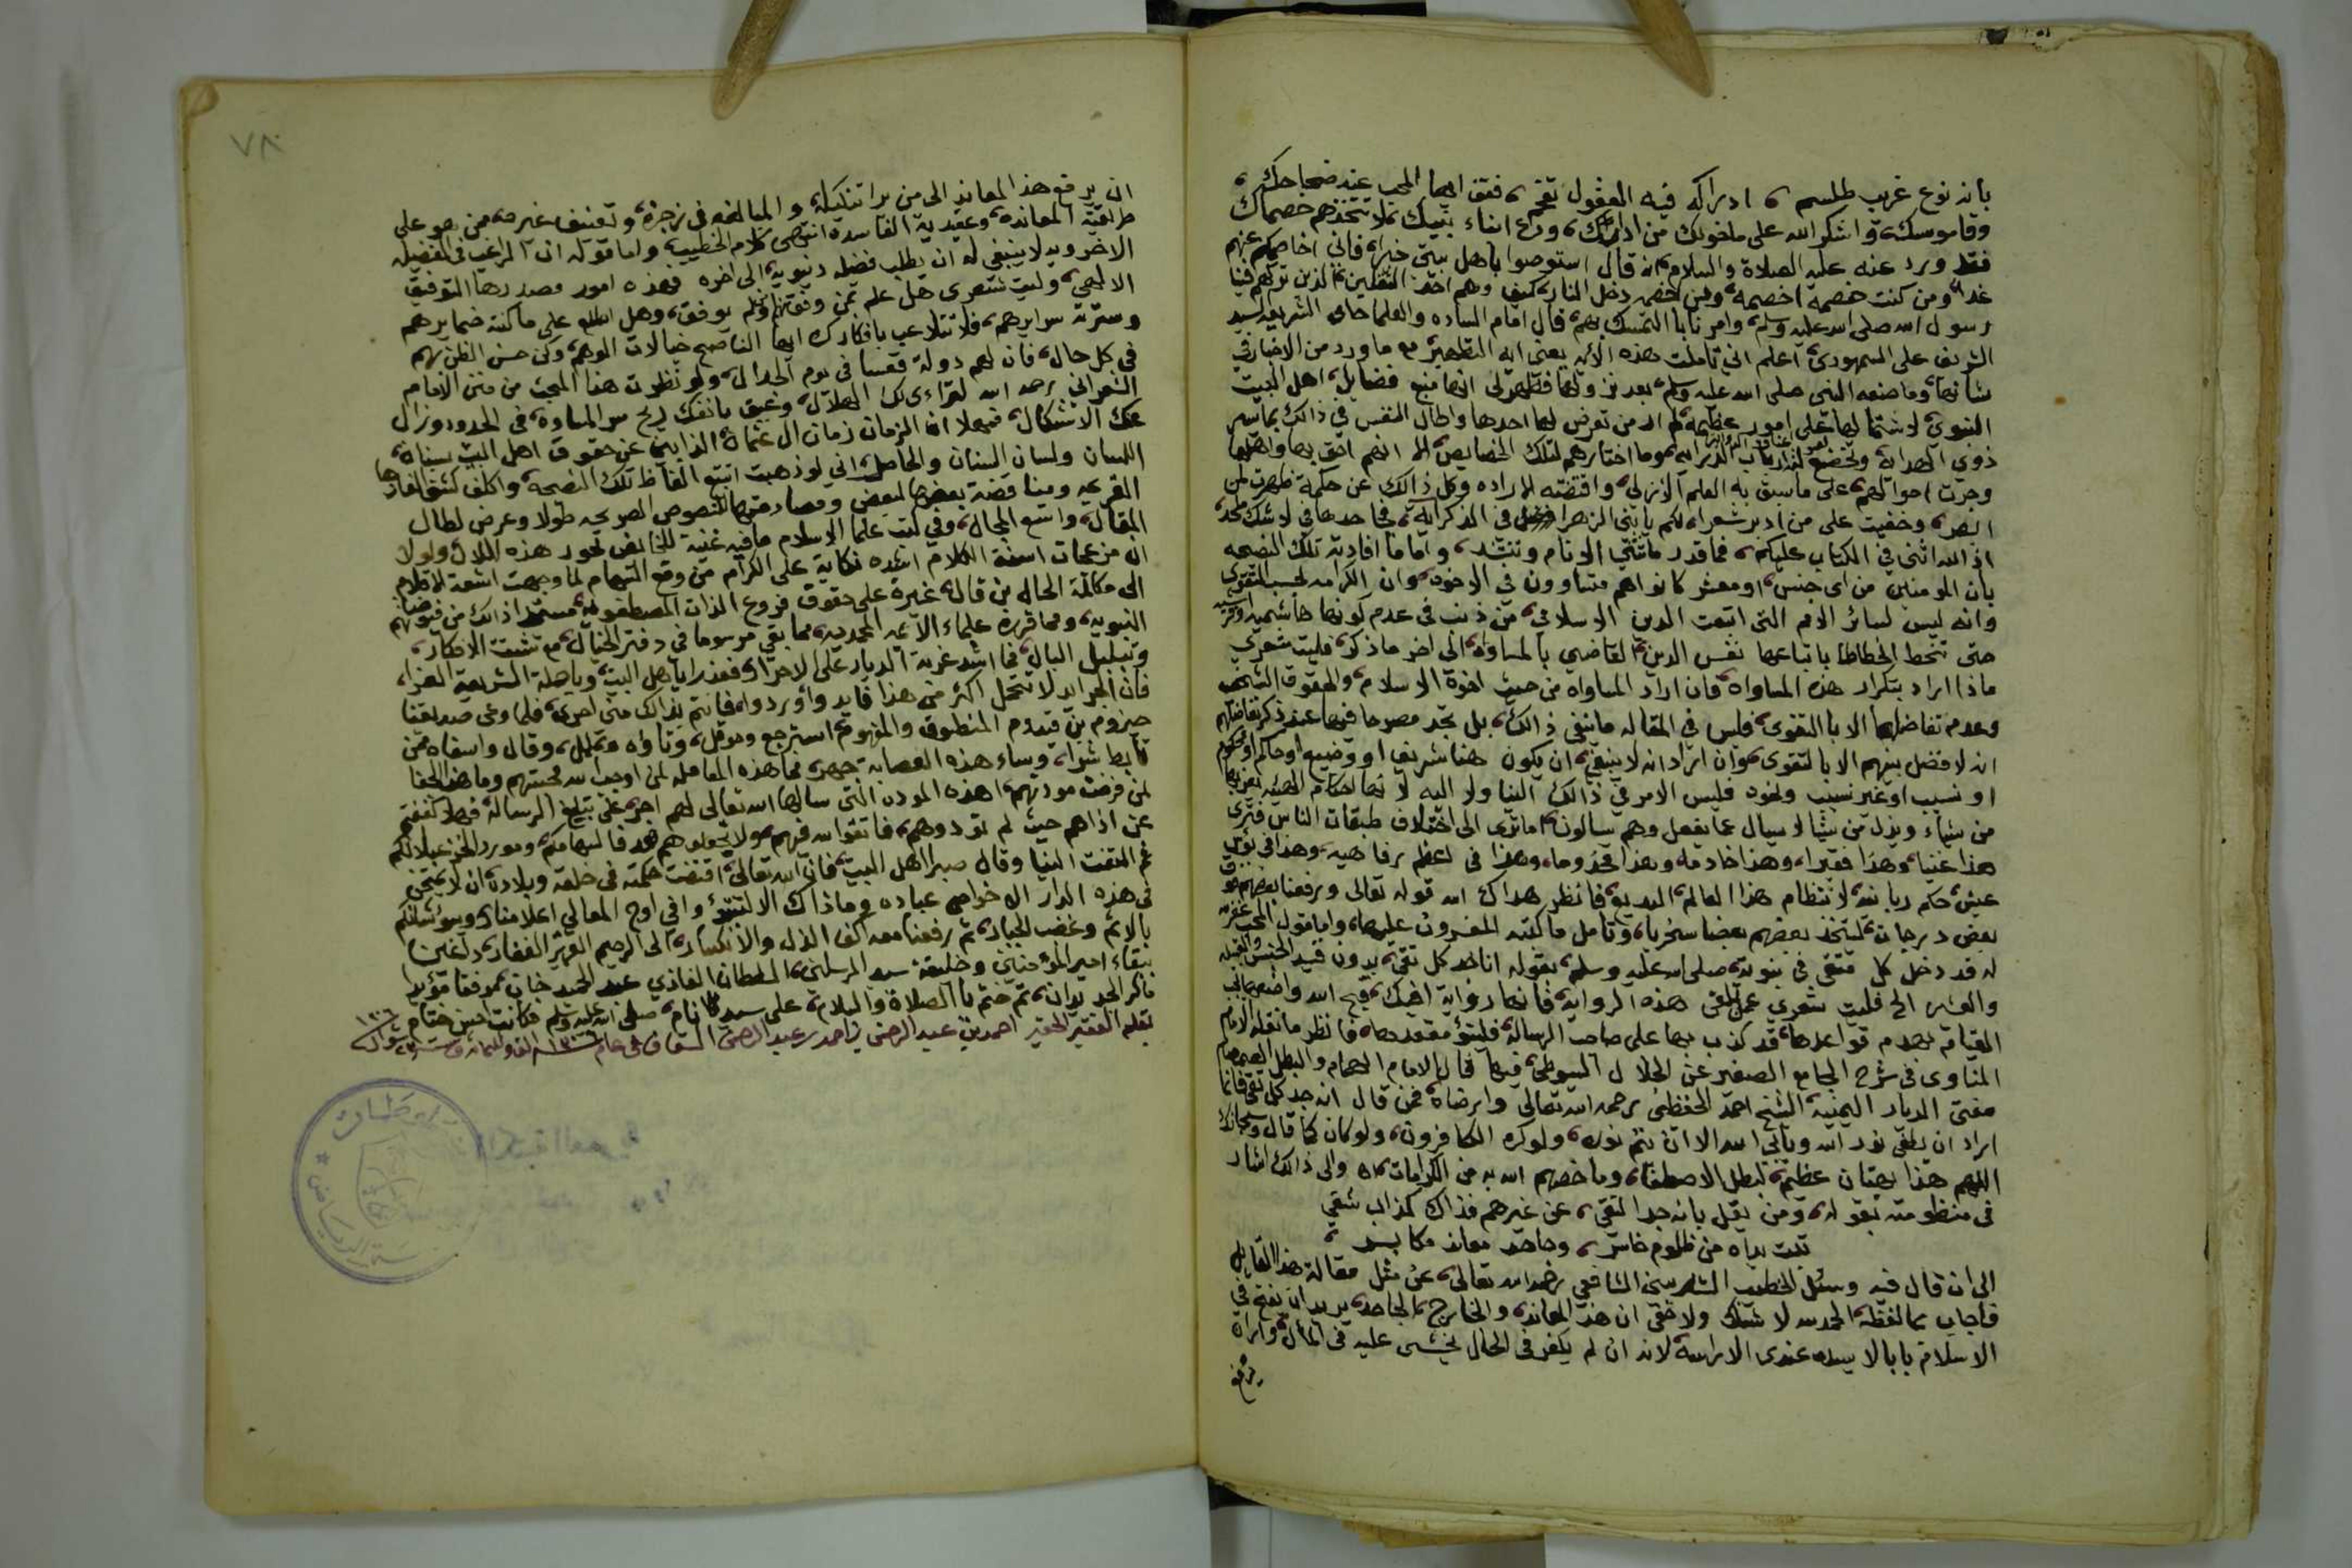 بانه نوع غريب طلسم ، ادراكه فيه العقول تقحم ، فقف ايها المجيب عند صحاحك ،
وقاموسك، واشكر الله على ما خولك من ادراك، ودع ابناء نبيك، لا تتخذهم خصماك
فقد ورد عنه عليه الصلاة والسلام، انه قال استوصوا بأهل بيتي خيرا، فاني اخاصمكم عنهم
غدا، ومن كنت خصمه اخصمه، ومن اخصمه دخل النار، كيف وهم احد الثقلين، الذين تركهم فينا
رسول الله صلى الله عليه وسلم، وامرنا با التمسك بهم، قال امام الساده والعلما حامى الشريعه السيد
الشريف على السمهودى، اعلم اني تاملت هذه الآيه يعنى ايه التطهير مع ما ورد من الاخبار في
شانها، وما صنعه النبى صلى الله عليه وسلم، بعد نزولها فظهر لى انها منبع فضايل، اهل البيت
النبوي، لاشتمالها على امور عظيمه، لم ار من تعرض لها احدها واطال النفس في ذالك بما تسر
ذوي الهدايه، وتخضع له ارباب الدرايه، وما اختارهم لتلك الخصايص، الا انهم احق بها واهلها
وجرت احوالهم، على ما سبق به العلم الازلي، واقتضته الاراده وكل ذالك عن حكمة ظهرت لمن
ابصر، وخفيت على من ادبر شعرا، لكم يا بنى الزهرا فضل في الذكر آية، فجاحدها في لا شك ملحد،
اذ الله اثنى في الكتاب عليكم، فما قدر ما تثني الانام وتنشد، واما ما افادته تلك النصحه
بان المومنين من اى جنس، او معشر كانوا هم متساوون في الاخوه، وان الكرامه بحسب التقوى
وانه ليس لسائر الامم التى اتبعت الدين الاسلامي، من ذنب في عدم كونها هاشميه او قرشيه
حتى تنحط انحطاطا باتباعها نفس الدين، القاضي بالمساواه، الى اخر ما ذكر، فليت شعري
ماذا اراد بتكرار هذه المساواه، فان اراد المساواه من حيث اخوة الاسلام، والحقوق الشرعيه
وعدم تفاضلها الا بالتقوى، فليس في المقاله ما ينفى ذالك، بل تجد مصرحا فيها عند ذكر تفاضلهم
انه لا فضل بينهم الا بالتقوى، وان اراد انه لا ينبغي، ان يكون هنا شريف او وضيع او حاكم او محكوم
او نسيب او غير نسيب ونحوه فليس الامر في ذالك الينا ولا اليه لانها احكام الهيه يعز بها
من يشاء ويذل من يشا لا يسال عما يفعل وهم يسالون، اما ترى الى اختلاف طبقات الناس فترى
هذا غنيا، وهذا فقيرا، وهذا خادمه وهذا مخدوما، وهذا في اعظم رفاهيه، وهذا في بؤس
عيش، حكم ربانيه لانتظام هذا العالم، البديع، فانظر هداك الله قوله تعالى ورفعنا بعضهم فوق
بعض درجات، ليتخذ بعضهم بعضا سخريا، وتامل ما كتبه المفسرون عليها، واما قول المجيب غفر
له قد دخل كل متقى في بنوته، صلى الله عليه وسلم، بقوله انا جد كل تقى، بدون قيد الجنس والقبيله
والعشيره الخ فليت شعري عمن تلقى هذه الروايه، فانها رواية افيك، قبح الله واضعها الى
القيامه بهدم قواعدها، قد كذب بها على صاحب الرساله، فليتبؤ مقعدها، فانظر ما نقله الامام
المناوى في شرح الجامع الصغير عن الجلال السيوطي، فيها قال الامام الهمام والبطل الصمصام
مفتى الديار اليمنيه الشيخ احمد الحفظى رحمه الله تعالى وارضاه، فمن قال انه جد كل تقى فانما
اراد ان يطفى نور الله ويابى الله الا ان يتم نوره، ولو كره الكافرون، ولو كان كما قال وسبحانك
اللهم هذا بهتان عظيم، لبطل الاصطفا، وما خصهم الله به من الكرامات، اه والى ذالك اشار
في منظومته بقوله، ومن يقل بانه جد التقي، عن غيرهم فذاك كذاب شقي
تبت يداه من ظلوم خاسر، وجاحد معاند مكابر ،
الى ان قال فيه وسئل الخطيب الشربينى الشافعي رحمه الله تعالى، عن مثل مقالة هذا القايل
فاجاب بما لفظه، الحمد لله لا شك ولا خفى ان هذا المعاند، والخارج، الجاحد، يريد ان يفتح في
الاسلام بابا لا يسده عندى الا راسه، لانه ان لم يكفر في الحال يخشى عليه في المآل، واراه
يرفع
٧٨
ان يرفع هذا المعاند الى من يرا تنكيله، والمبالغه في زجره، وتعنيف غيره، ممن هو على
طريقته المعانده، وعقيدته الفاسده انتهى كلام الخطيب، واما قوله ان الراغب في الفضيله
الاخرويه لا ينبغي له ان يطلب فضيله دنيويه، الى اخره فهذه امور مصدرها التوفيق
الالهي، وليت شعرى هل علم بمن وفق ومن لم يوفق، وهل اطلع على ما كنته ضمايرهم
وسترته سرايرهم، فلا تتلاعب بافكارك ايها الناصح خيالات الوهم، وكن حسن الظن بهم
في كل حال، فان لهم دولة قعسا في يوم الجدال، ولو نظرت هذا المبحث من منن الامام
الشعراني رحمه الله لتراءى لك الهلال، وعبق بانفك ريح سر الساده، في الحدود وزال
عنك الاشكال، فهلا ان الزمان زمان ال عثمان، الذابين عن حقوق اهل البيت بسنان
اللسان ولسان السنان والحاصل، اني لو ذهبت اتتبع الفاظ تلك النصحه، واكلف كشف الغازها
القريحه ومناقضة بعضها لبعض ومصادمتها للنصوص الصريحه طولا وعرض لطال
المقال، واتسع المجال، وفي كتب علما الاسلام ما فيه غنية للخايض بحور هذه اللال ولولا
ان مزعجات اسنة الكلام اشده نكاية على الكرام من وقع السهام لما وجهت اشعة الاقلام
الى مكالمة الحاله من قال، غيرة على حقوق فروع الذات المصطفويه، مستمدا ذالك من فيوضاتهم
النبويه، ومما قرره علماء الائمه المحمديه، مما بقي مرسوما في دفتر الخيال، مع تشتت الافكار،
وتبلبل البال، فما اشد غربة الديار على الاحرار، فعذرا يا اهل البيت، ويا حملة الشريعة الغراء،
فان الجرايد لا تتحمل اكثر من هذا
حيزوم بن قيدوم المنطوق والمفهوم، استرجع وحوقل، وتاوه وتململ، وقال واسفاه ممن
تأبط شرا، وساء هذه العصابة جهرا، فما هذه المعامله لمن اوجب الله محبتهم وما هذا الجفا
لمن فرضت مودتهم، اهذه الموده التى سالها الله تعالى لهم اجرا على تبليغ الرساله، فهلا كففتم
عن اذاهم حيث لم تودوهم، فاتقوا الله فيهم، ولا تجعلوهم هدفا لسهامكم، وموردا لخزعبلاتكم
ثم التفت الينا وقال صبرا اهل البيت، فان الله تعالى، اقتضت حكمته في خلقه وبلاده، ان لا يمتحن
في هذه الدار الا خواص عباده وما ذاك الا لتتبوؤا في اوج المعالي اعلا منازل
بالاثم وغضب الجبار، ثم رفعنا معه اكف الذل والانكسار، الى الرحيم العزيز الغفار، داعين
ببقاء امير المؤمنين وخليفة سيد المرسلين، السلطان الغازي عبد الحميد خان، موفقا مؤيدا
بأكر الجديدان، ثم ختم با الصلاة والسلام، على سيد الانام، صلى الله عليه وسلم فكانت حسن ختام
بقلم الفقير الحقير احمد بن عبد الرحمن بن احمد بن عبد الرحمن السقاف في عام ١٣٠٦